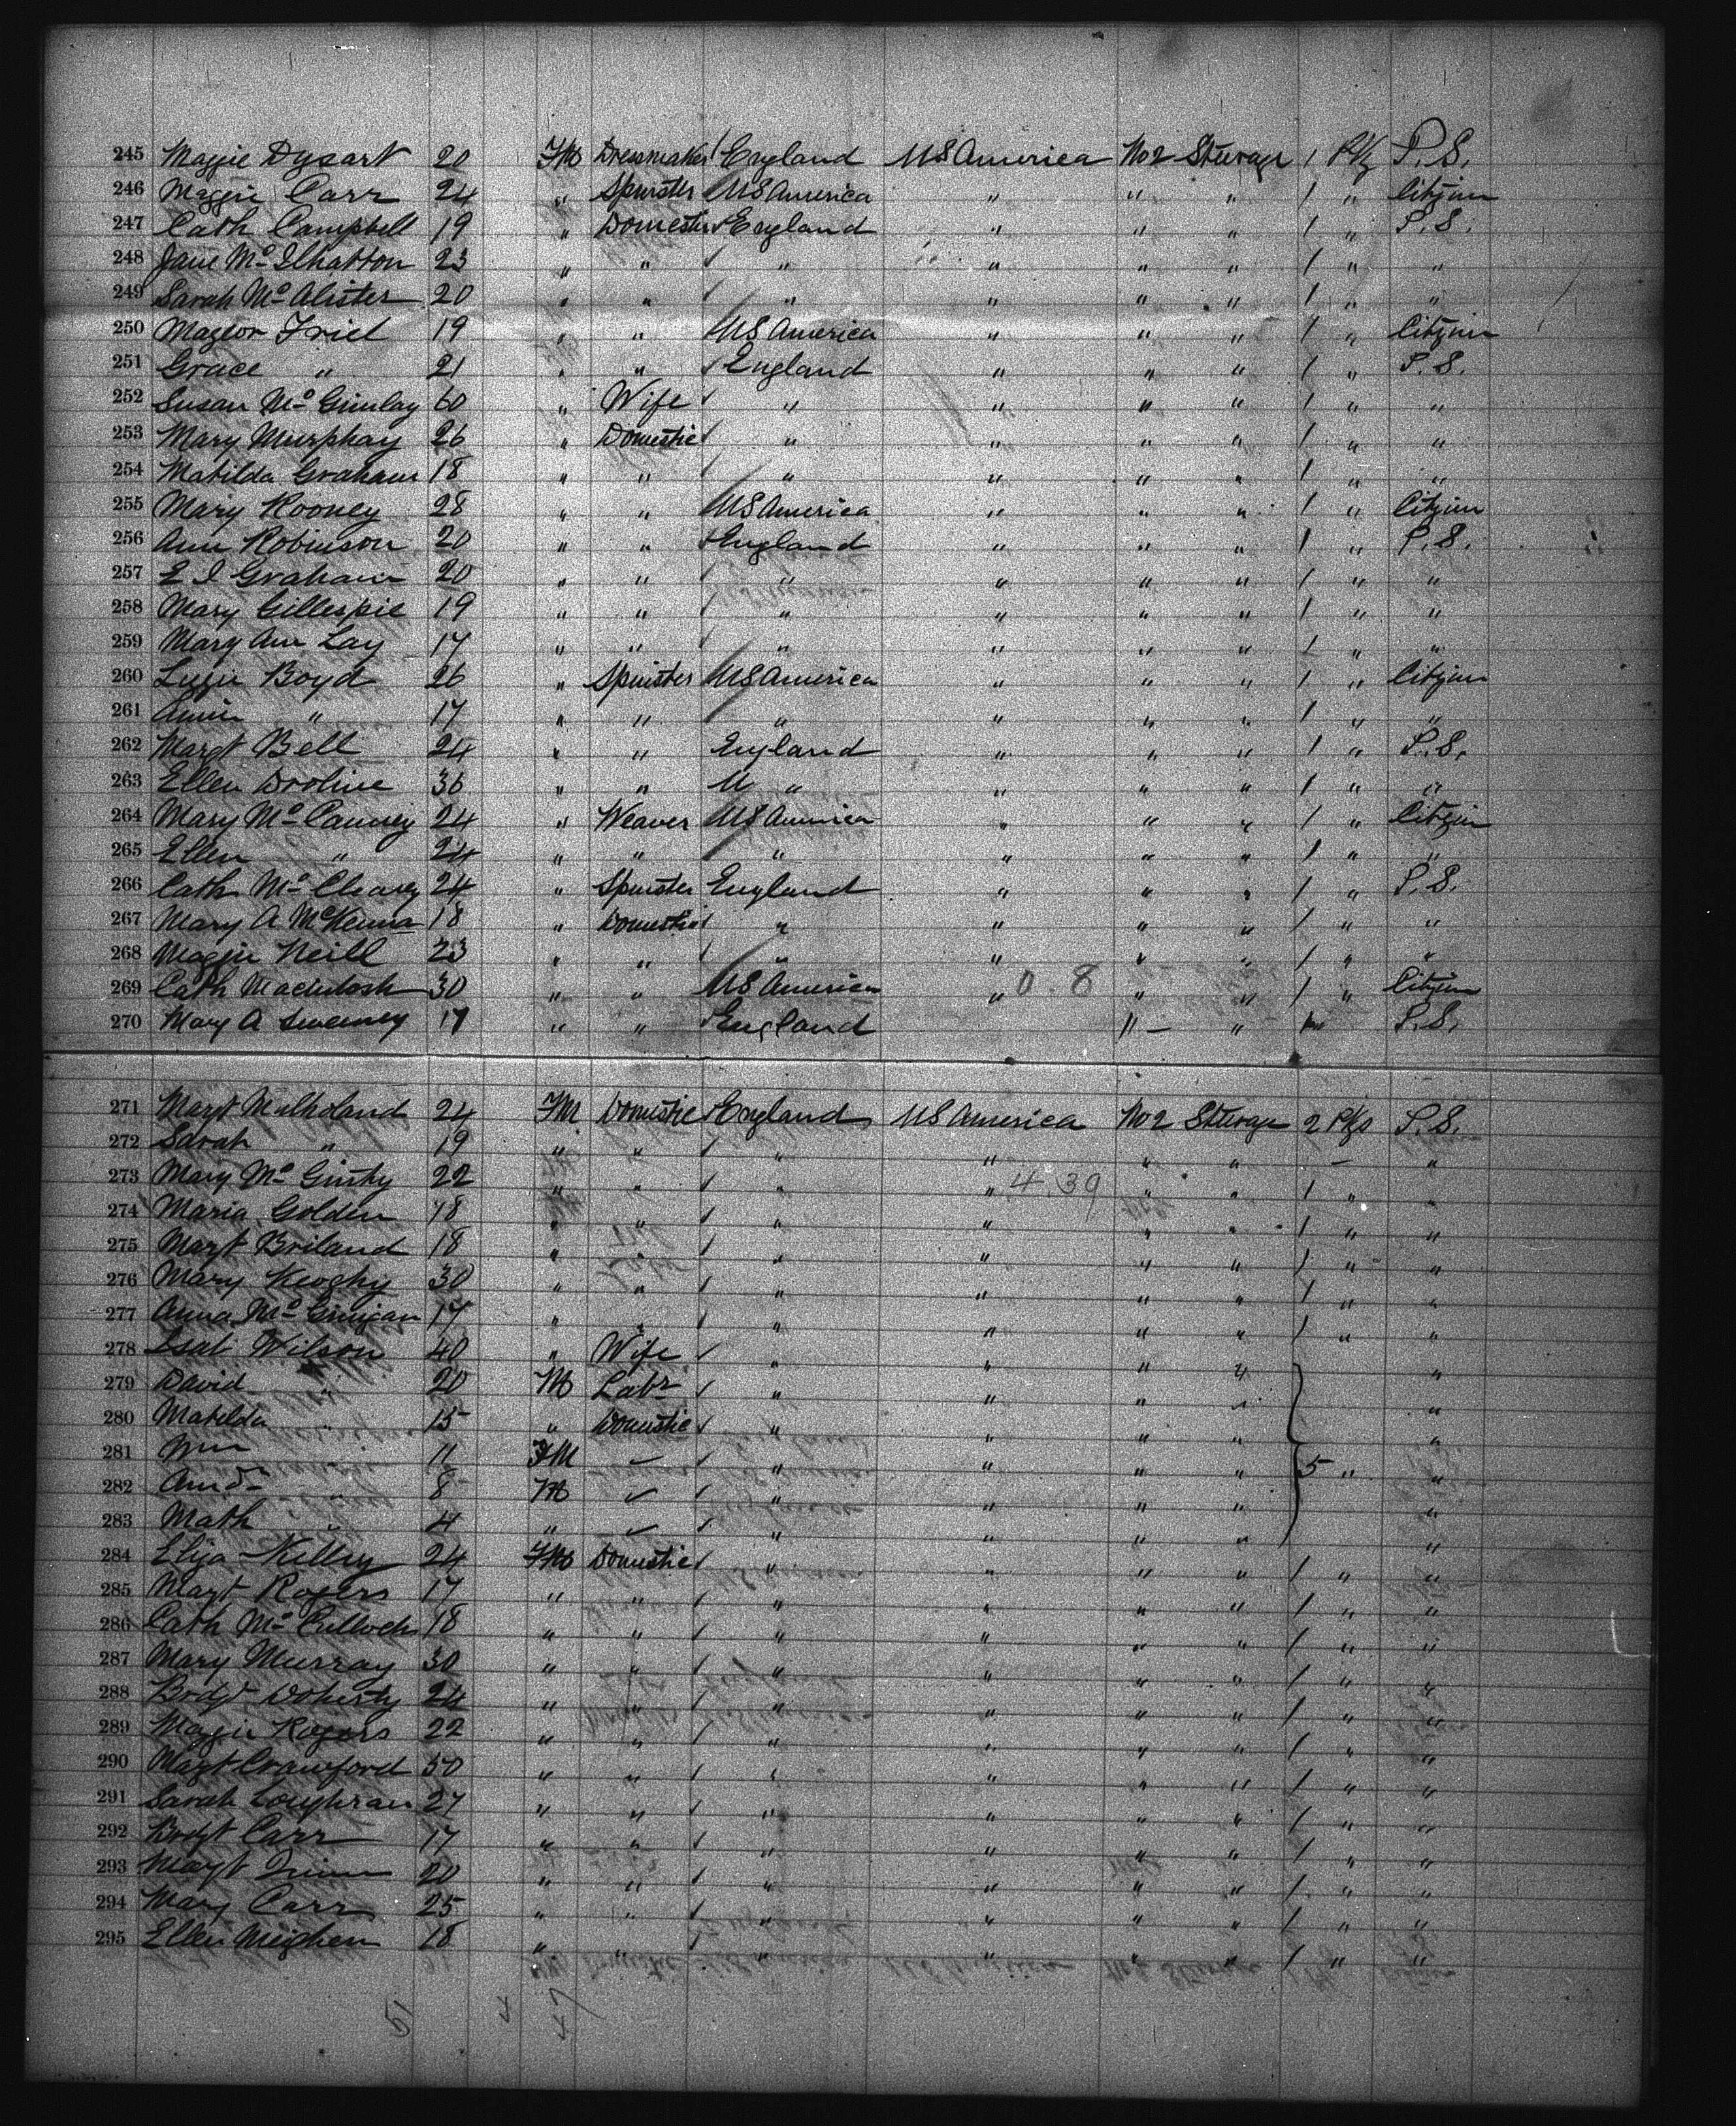 245 Maggie Dysart 20 FM Dressmaker England US America No 2 Steerage 1 Pkg P.S.
246 Maggie Carr 24 " Spinster US America " " " 1 " Citizen
247 Cath Campbell 19 " Domestic England " " " 1 " P.S.
248 Jane McIlhatton 23 " " " " " " 1 " "
249 Sarah McAlister 20 " " " " " " 1 " "
250 Friel 19 " " US America " " " 1 " Citizen
251 Grace " 21 " " England " " " 1 " P.S.
252 Susan McGinlay 60 " Wife " " " " 1 " "
253 Mary Murphay 26 " Domestic " " " " 1 " "
254 Matilda Graham 18 " " " " " " 1 " "
255 Mary Rooney 28 " " US America " " " 1 " Citizen
256 Ann Robinson 20 " " England " " " 1 " P.S.
257 E I Graham 20 " " " " " " 1 " "
258 Mary Gillespie 19 " " " " " " 1 " "
259 Mary Ann Lay 17 " " " " " " 1 " "
260 Lizzie Boyd 26 " Spinster US America " " " 1 " Citizen
261 Annie " 17 " " " " " " 1 " "
262 Margt Bell 24 " " England " " " 1 " P.S.
263 Ellen 36 " " " " " " 1 " "
264 Mary 24 " Weaver US America " " " 1 " Citizen
265 Ellen " 24 " " " " " " 1 " "
266 Cath McCleary 24 " Spinster England " " " 1 " P.S.
267 Mary A McKenna 18 " Domestic " " " " 1 " "
268 Maggie Neill 23 " " " " " " 1 " "
269 Cath Macintosh 30 " " US America " 0.8 " " 1 " Citizen
270 Mary A Sweeney 17 " " England " " P.S.
271 Margt Mulholand 24 FM Domestic England US America No 2 Steerage 2 Pkgs P.S.
272 Sarah " 19 " " " " " " - "
273 Mary McGinty 22 " " " " 4.39 " " 1 " "
274 Maria Golden 18 " " " " " " 1 " "
275 Margt Briland 18 " " " " " " 1 " "
276 Mary Keoghy 30 " " " " " " 1 " "
277 Anna McGinigan 17 " " " " " " 1 " "
278 Isab Wilson 40 " Wife " " " " "
279 David " 20 M Labr " " " " "
280 Matilda " 15 " Domestic " " " " "
281 Wm 11 FM " " " " 5 " "
282 Andw " 8 M " " " " "
283 Math " 4 " " " " " "
284 Eliza Kelley 24 FM Domestic " " " " 1 " "
285 Margt Rogers 17 " " " " " " 1 " "
286 Cath McCulloch 18 " " " " " " 1 " "
287 Mary Murray 30 " " " " " " 1 " "
288 Bridgt Doherty 24 " " " " " " 1 " "
289 Maggie Rogers 22 " " " " " " 1 " "
290 Margt Crawford 50 " " " " " " 1 " "
291 Sarah Loughran 27 " " " " " " 1 " "
292 Bridgt Carr 17 " " " " " " 1 " "
293 Margt Quinn 20 " " " " " " 1 " "
294 Mary Carr 25 " " " " " " 1 " "
295 Ellen Meighen 18 " " " " " " 1 " "